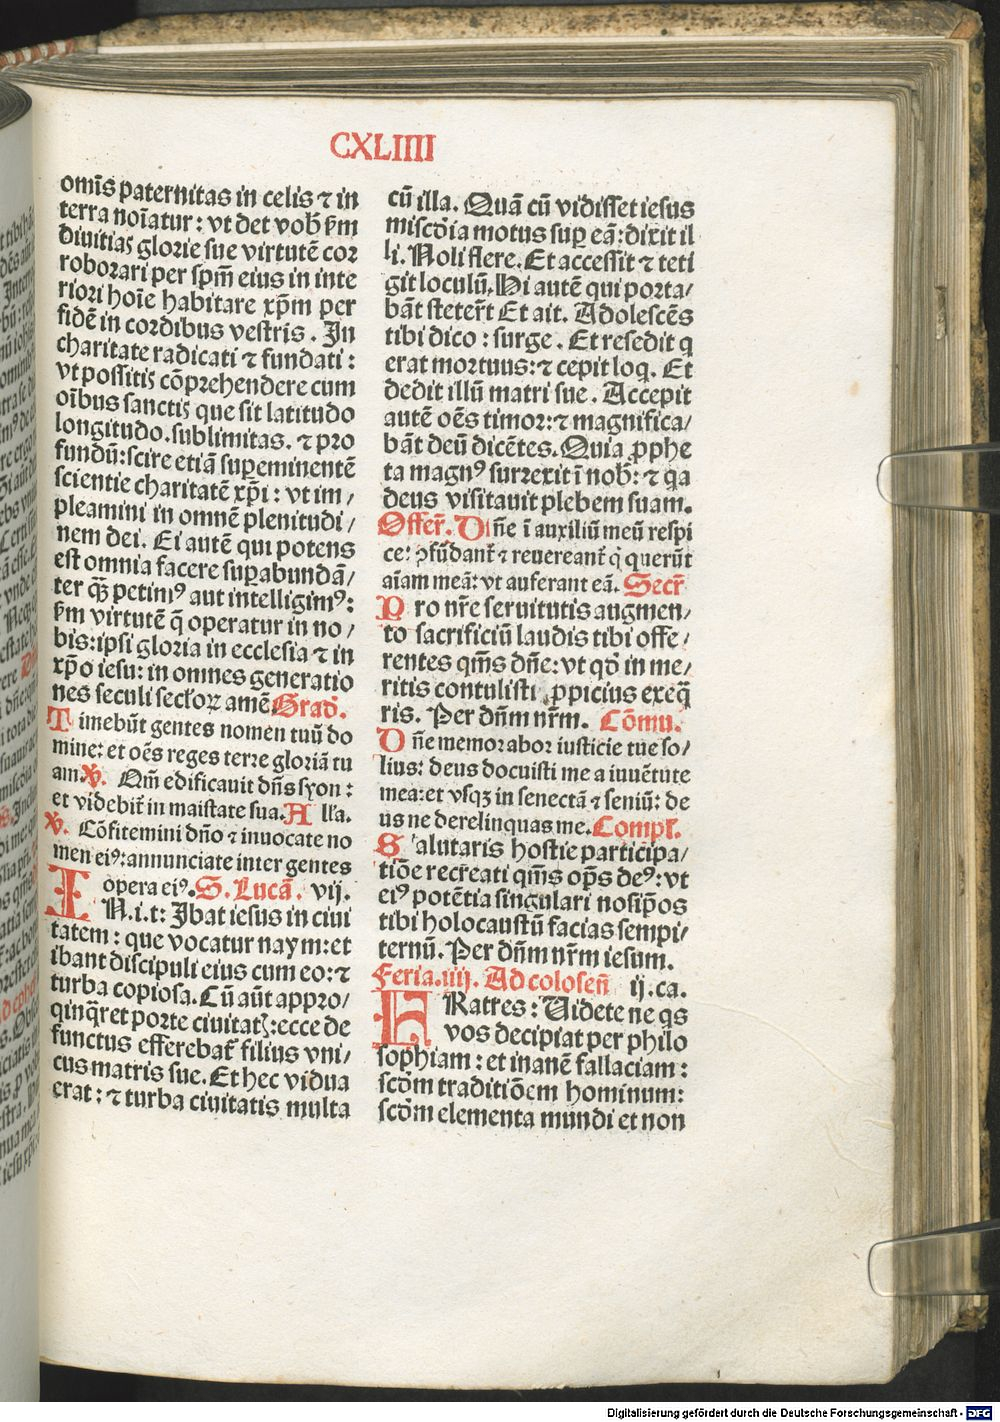 CXLIIII
omīs paternitas in celis ⁊ in
terra noīatur: vt det vob̄ ẜm
diuitias glorie sue virtutē cor
roborari per spm̄ eius in inte
riori hoīe habitare xp̄m per
fidē in cordibus vestris. In
charitate radicati ⁊ fundati:
vt possitis cōprehendere cum
oībus sanctis que sit latitudo
longitudo. sublimitas. ⁊ pro
fundū: scire etiā suꝑeminentē
scientie charitatē xp̄i: vt im/
pleamini in omnē plenitudi/
nem dei. Ei autē qui potens
est omnia facere suꝑabundā/
ter qꝫ̄ petimꝰ aut intelligimꝰ:
ẜm virtutē q̄ operatur in no/
bis: ipsi gloria in ecclesia ⁊ in
xp̄o iesu: in omnes generatio
nes seculi secĺoꝝ amē. Grad̄.
Timebūt gentes nomen tuū do
mine: et oēs reges terre gloriā tu
am. ℣. Qm̄ edificauit dn̄s syon:
et videbit̄ in maiestate sua. Alĺa.
℣. Cōfitemini dn̄o ⁊ inuocate no
men eiꝰ: annunciate inter gentes
opera eiꝰ. S. Lucā. vij.
IN. i. t: Ibat iesus in ciui
tatem: que vocatur naym: et
ibant discipuli eius cum eo: ⁊
turba copiosa. Cū aūt appro/
qinq̄ret porte ciuitatꝭ: ecce de
functus efferebat̄ filius vni/
cus matris sue. Et hec vidua
erat: ⁊ turba ciuitatis multa
cū illa. Quā cū vidisset iesus
mīscd̄ia motus suꝑ eā: dixit il
li. Noli flere. Et accessit ⁊ teti
git loculū. Hi autē qui porta/
bāt steterūt Et ait. Adolescēs
tibi dico: surge. Et resedit q
erat mortuus: ⁊ cepit loq. Et
dedit illū matri sue. Accepit
autē oēs timor: ⁊ magnifica/
bāt deū dicētes. Quia ꝓphe
ta magnꝰ surrexit ī nob̄: ⁊ qa
deus visitauit plebem suam.
Offer̄. Dn̄e ī auxiliū meū respi
ce: ꝯfūdant̄ ⁊ reuereant̄ q̇ querūt
aīam meā: vt auferant eā. Secr̄
Pro nr̄e seruitutis augmen/
to sacrificiū laudis tibi offe/
rentes qm̄s dn̄e: vt qd̄ in me/
ritis contulisti ꝓpicius exeq̄
ris. Per dn̄m nr̄m. Cōmu.
Dn̄e memorabor iusticie tue so/
lius: deus docuisti me a iuuētute
mea: et vsqꝫ in senectā ⁊ seniū: de
us ne derelinquas me. Compĺ.
Salutaris hostie participa/
tiōe recreati qm̄s op̄s deꝰ: vt
eiꝰ potētia singulari nosip̄os
tibi holocaustū facias sempi/
ternū. Per dn̄m nr̄m iesum.
Feria. iiij. Ad coloseñ ij. ca.
FRatres: Uidete ne qs
vos decipiat per philo
sophiam: et inanē fallaciam:
scd̄m traditiōem hominum:
scd̄m elementa mundi et non
Digitalisierung gefördert durch die Deutsche Forschungsgemeinschaft - DFG